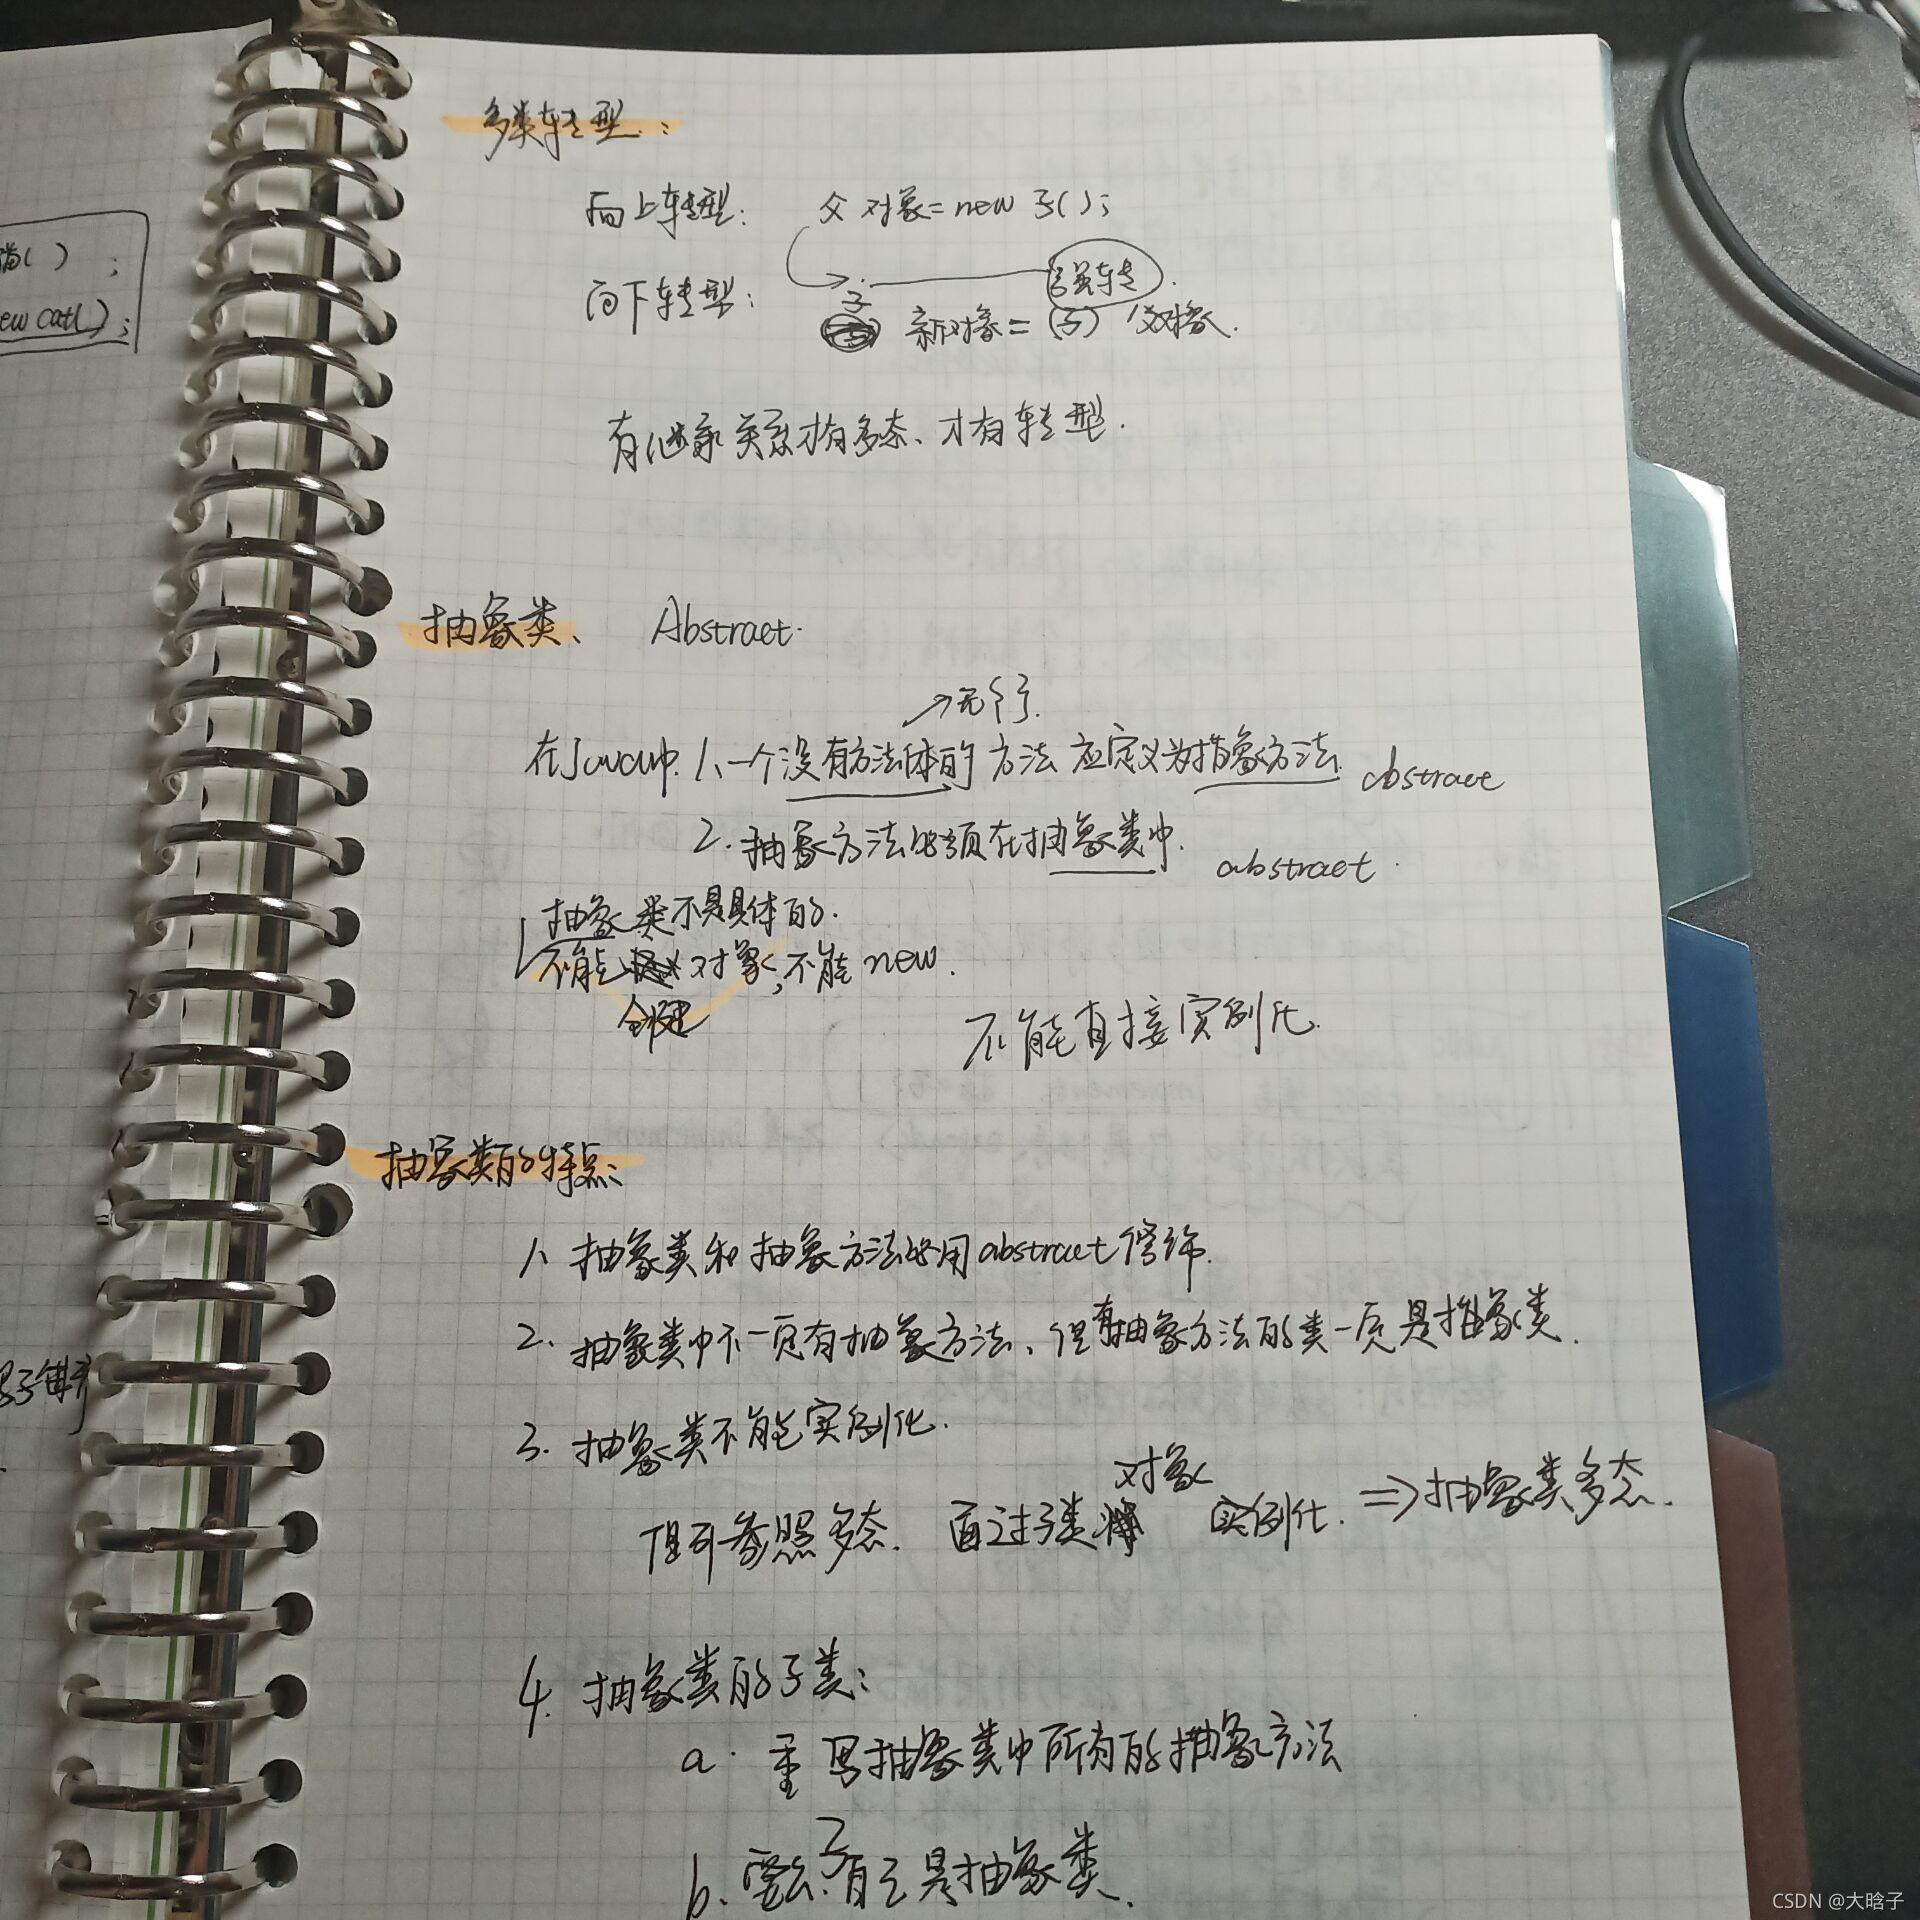 猫( ) ;
ew cat( );
多类转型:
向上转型: 父 对象 = new 子();
强转
向下转型: 子 新对象 = (子) 父对象.
有继承关系才有多态、才有转型.
抽象类、 Abstract.
→无行.
在Java中. 1、一个没有方法体的 方法 应定义为抽象方法. abstract
2. 抽象方法必须在抽象类中. abstract.
抽象类不是具体的.
不能 对象, 不能 new.
创建
不能直接实例化.
抽象类的特点:
1. 抽象类和抽象方法必用abstract修饰.
2. 抽象类中不一定有抽象方法、但有抽象方法的类一定是抽象类.
3. 抽象类不能实例化.
对象
但可参照多态. 通过子类 实例化. ⇒抽象类多态.
4. 抽象类的子类:
a. 重写抽象类中所有的抽象方法
子
b. 要么 自己是抽象类.
CSDN @大晗子